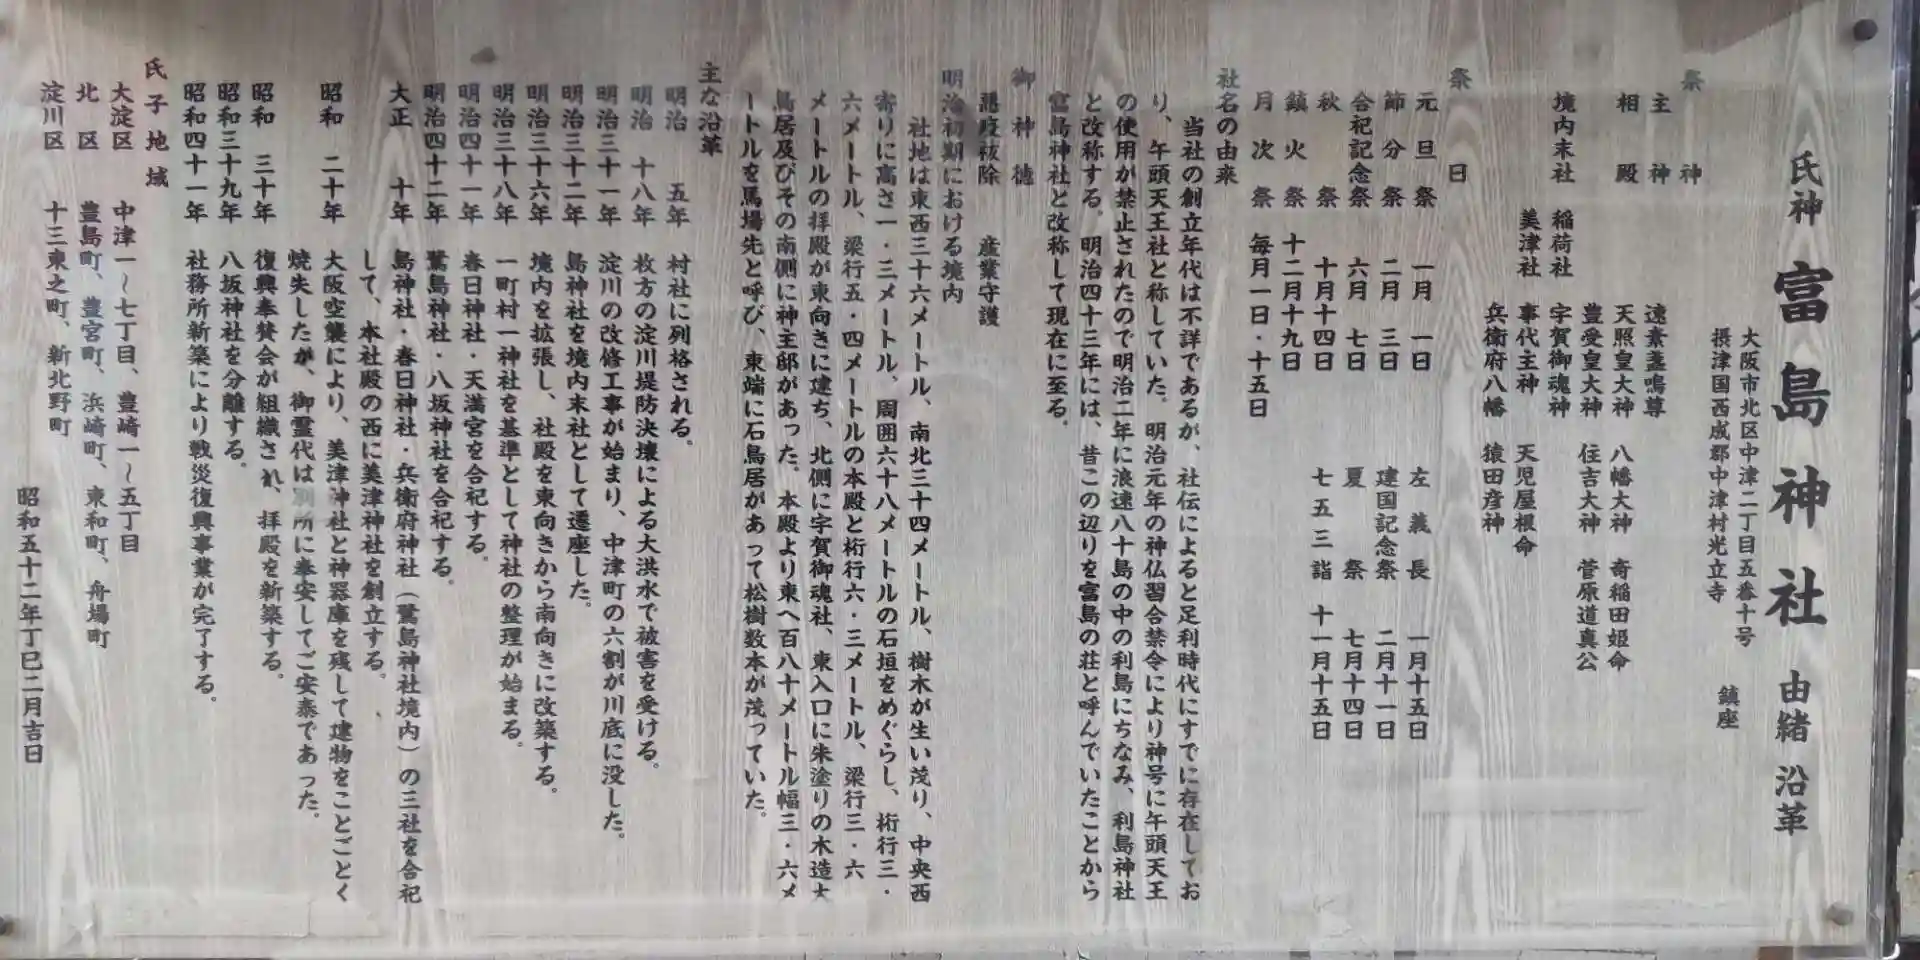 氏神 富島神社 由緒 沿革
大阪市北区中津二丁目五番十号
摂津国西成郡中津村光立寺 鎮座
祭神
主神 速素盞嗚尊
相殿 天照皇大神 八幡大神 奇稲田姫命
豊受皇大神 住吉大神 菅原道真公
境内末社 稲荷社 宇賀御魂神
美津社 事代主神 天児屋根命
兵衛府八幡 猿田彦神
祭日
元旦祭 一月一日 左義長 一月十五日
節分祭 二月三日 建国記念祭 二月十一日
合祀記念祭 六月七日 夏祭 七月十四日
秋祭 十月十四日 七五三詣 十一月十五日
鎮火祭 十二月十九日
月次祭 毎月一日・十五日
社名の由来
当社の創立年代は不詳であるが、社伝によると足利時代にすでに存在してお
り、午頭天王社と称していた。明治元年の神仏習合禁令により神号に午頭天王
の使用が禁止されたので明治二年に浪速八十島の中の利島にちなみ、利島神社
と改称する。明治四十三年には、昔この辺りを富島の荘と呼んでいたことから
富島神社と改称して現在に至る。
御神徳
悪疫祓除 産業守護
明治初期における境内
社地は東西三十六メートル、南北三十四メートル、樹木が生い茂り、中央西
寄りに高さ一・三メートル、周囲六十八メートルの石垣をめぐらし、桁行三・
六メートル、梁行五・四メートルの本殿と桁行六・三メートル、梁行三・六
メートルの拝殿が東向きに建ち、北側に宇賀御魂社、東入口に朱塗りの木造大
鳥居及びその南側に神主邸があった。本殿より東へ百八十メートル幅三・六メ
ートルを馬場先と呼び、東端に石鳥居があって松樹数本が茂っていた。
主な沿革
明治 五年 村社に列格される。
明治 十八年 枚方の淀川堤防決壊による大洪水で被害を受ける。
明治三十一年 淀川の改修工事が始まり、中津町の六割が川底に没した。
明治三十二年 島神社を境内末社として遷座した。
明治三十六年 境内を拡張し、社殿を東向きから南向きに改築する。
明治三十八年 一町村一神社を基準として神社の整理が始まる。
明治四十一年 春日神社・天満宮を合祀する。
明治四十二年 鷺島神社・八坂神社を合祀する。
大正 十年 島神社・春日神社・兵衛府神社（鷺島神社境内）の三社を合祀
して、本社殿の西に美津神社を創立する。
昭和 二十年 大阪空襲により、美津神社と神器庫を残して建物をことごとく
焼失したが、御霊代は別所に奉安してご安泰であった。
昭和 三十年 復興奉賛会が組織され、拝殿を新築する。
昭和三十九年 八坂神社を分離する。
昭和四十一年 社務所新築により戦災復興事業が完了する。
氏子地域
大淀区 中津一～七丁目、豊崎一～五丁目
北区 豊島町、豊宮町、浜崎町、東和町、舟場町
淀川区 十三東之町、新北野町
昭和五十二年丁巳二月吉日